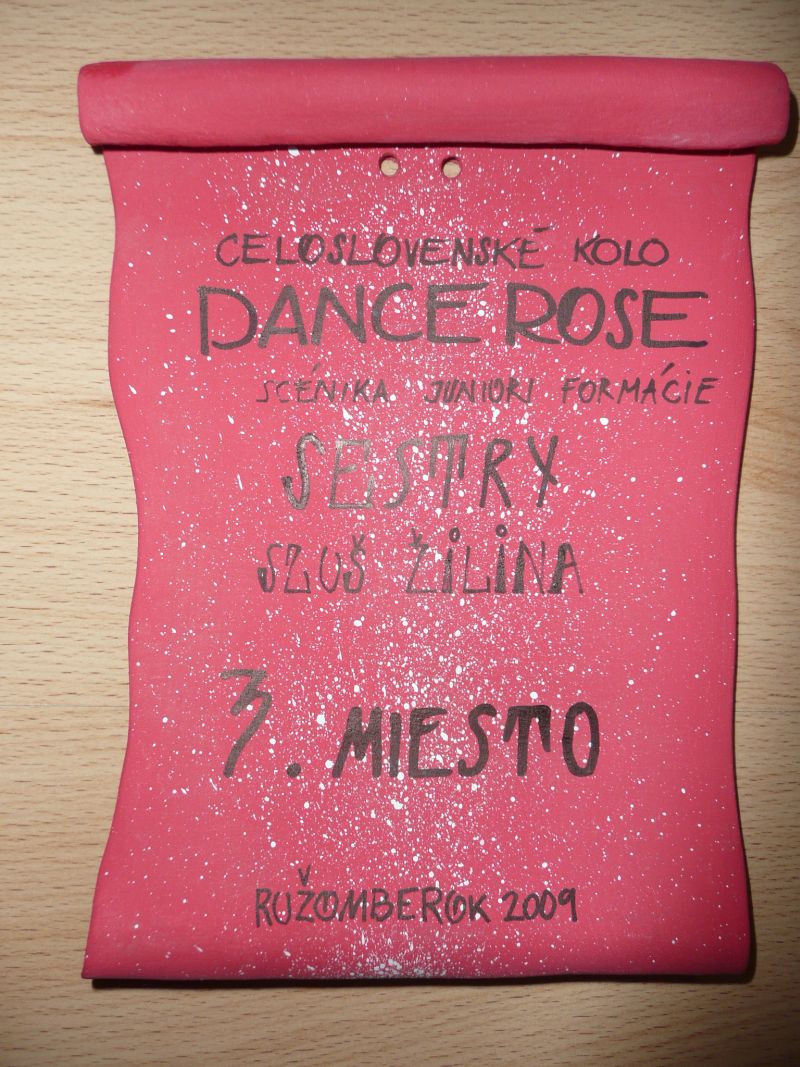 CELOSLOVENSKÉ KOLO
DANCE ROSE
SCÉNIKA JUNIORI FORMÁCIE
SESTRY
SZUŠ ŽILINA
3. MIESTO
RUŽOMBEROK 2009